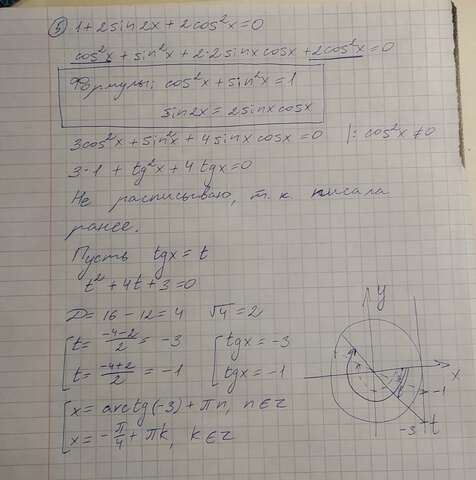 ⑤ 1+2sin2x+2cos²x=0
cos²x+sin²x+2·2sinxcosx+2cos²x=0
Формулы: cos²x+sin²x=1
sin2x=2sinxcosx
3cos²x+sin²x+4sinxcosx=0 |:cos²x≠0
3·1+tg²x+4tgx=0
Не расписываю, т.к. писала
ранее.
Пусть tgx=t
t²+4t+3=0
D=16-12=4 √4=2
[t=(-4-2)/2=-3 [tgx=-3
[t=(-4+2)/2=-1 [tgx=-1
[x=arctg(-3)+πn, n∈z
[x=-π/4+πk, k∈z
y
x
-1
-3
t